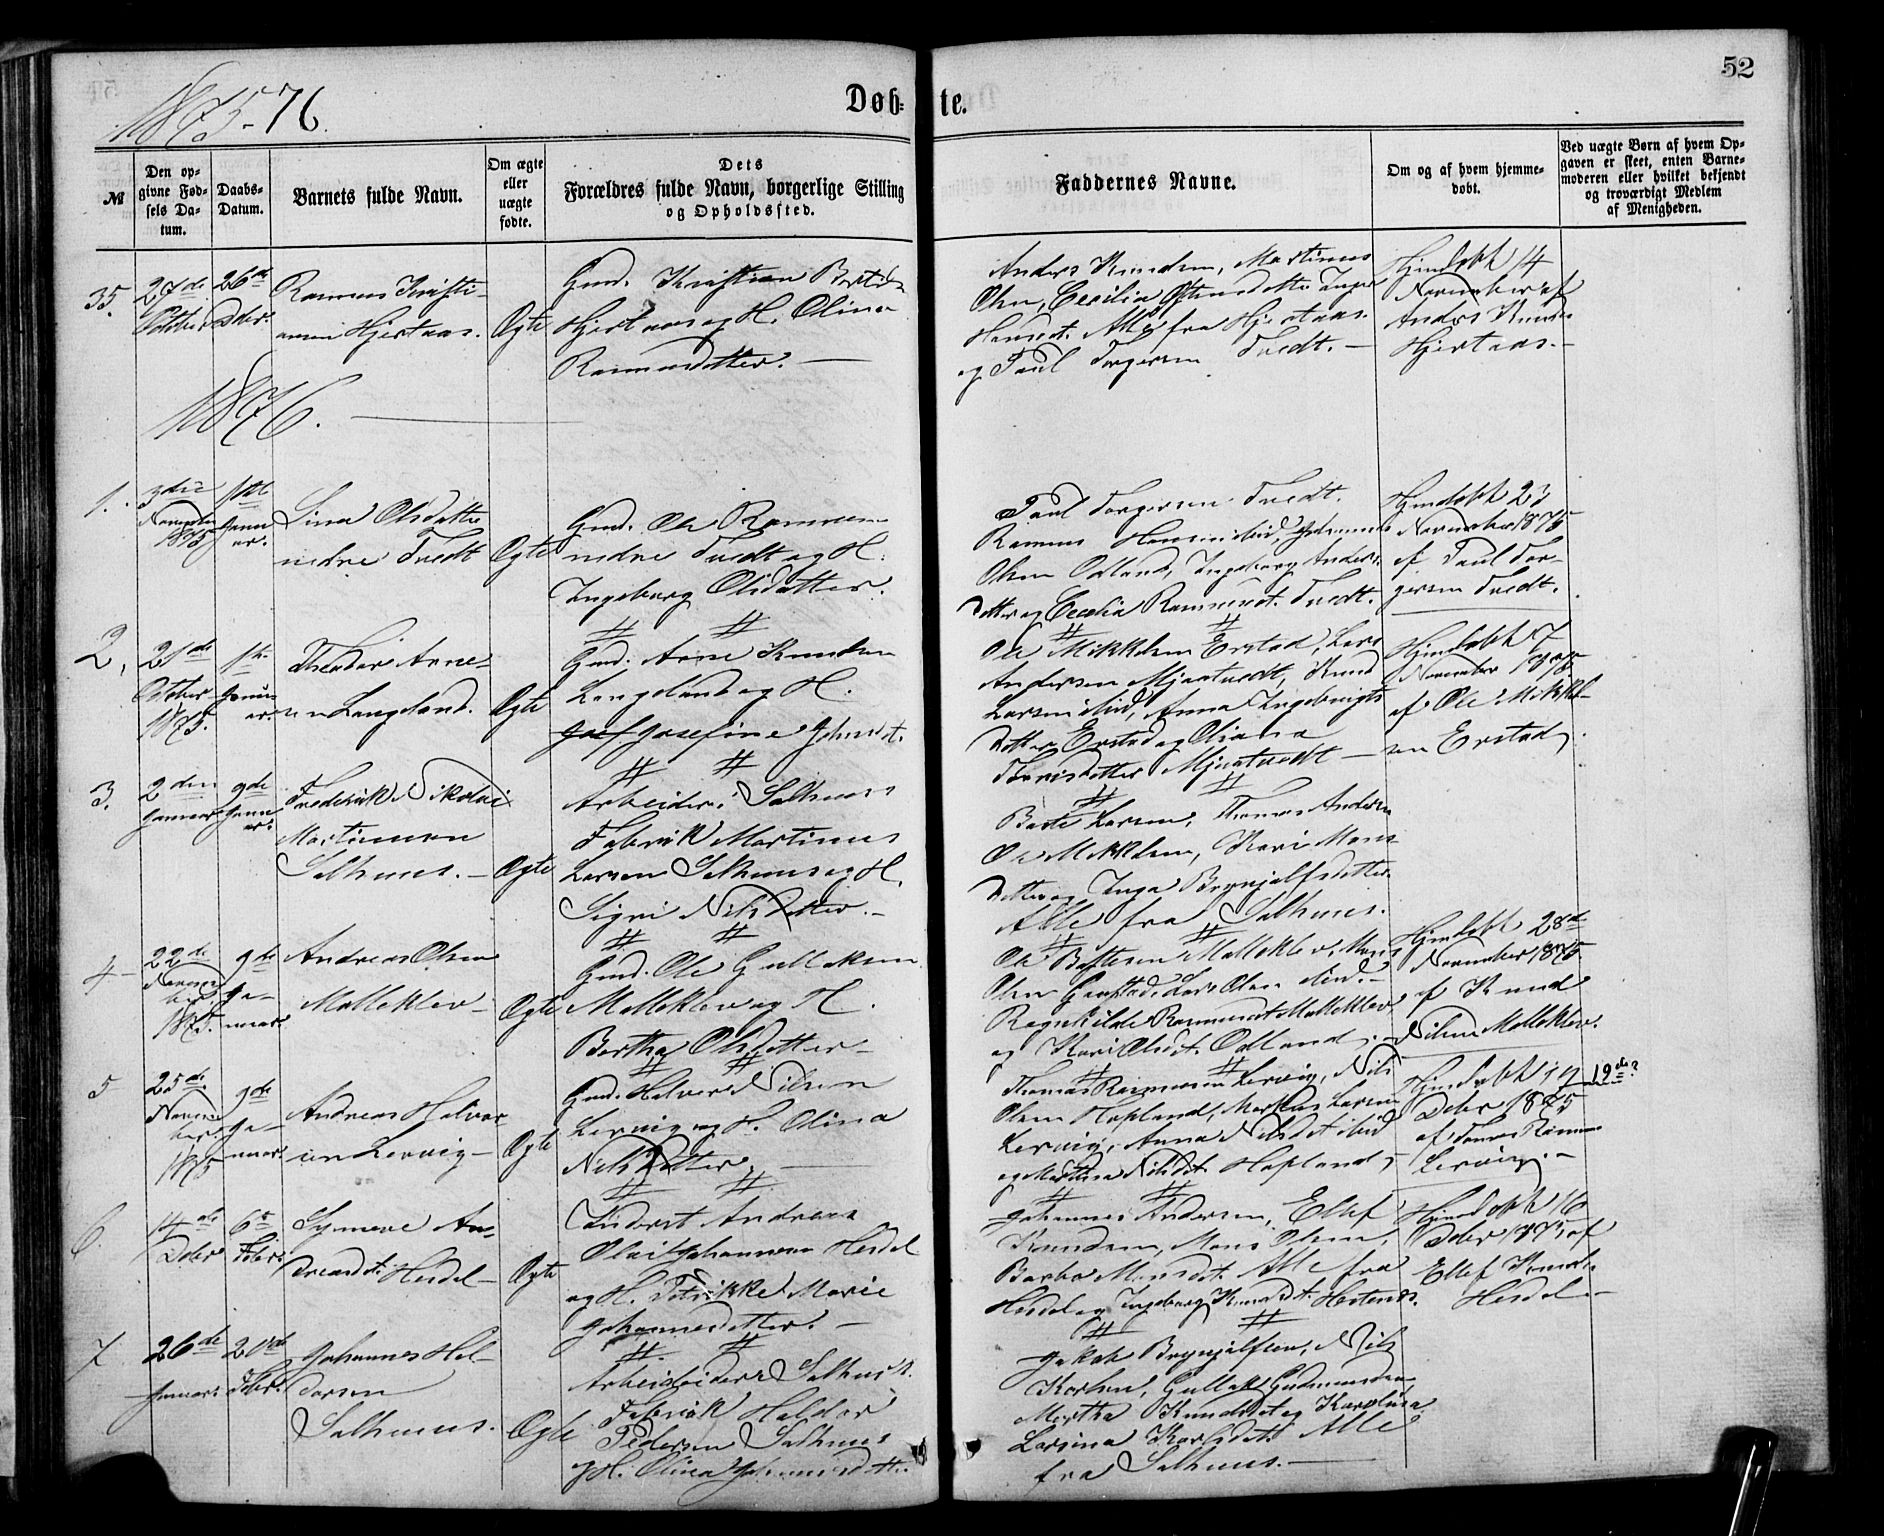 52
1875-76.
Døb-
te.
№
Den op-
givne Fød-
sels Da-
tum.
Daabs-
Datum.
Barnets fulde Navn.
Om ægte
eller
uægte
fødte.
Dets
Forældres fulde Navn, borgerlige Stilling
og Opholdssted.
Faddernes Navne.
Om og af hvem hjemme-
døbt.
Ved uægte Børn af hvem Op-
gaven er skeet, enten Barne-
moderen eller hvilket bekjendt
og troværdigt Medlem
af Menigheden.
35.
27de
October
26de
Dcbr.
Rasmus Kristi-
ansen Hjertaas.
Ægte
Gmd. Kristian
Hjertaas og H. Olina
Rasmusdatter. —
Anders Knudsen, Martinus
Olsen, Cecilia Inger
Hansdt. Alle fra Hjertaas.
og Paul Torgersen Tvedt. —
Hjemdøbt 14
November af
Anders Knudsen
Hjertaas. —
1876. —
1.
3die
November
1875
1ste
Janu-
ar.
Lina Olsdatter
nedre Tvedt
Ægte
Gmd. Ole Rasmussen
nedre Tvedt og H.
Ingeborg Olsdatter.
Paul Torgersen Tvedt.
Rasmus Hansen ibid, Johannes
Olsen Odland, Ingeborg Anders-
datter og Cecilia Rasmusdt. Tvedt.
Hjemdøbt 23
November 1875
af Paul Tor-
gersen Tvedt.
2.
21de
October
1875.
1ste
Janu-
ar.
Theodor Arne-
sen Langeland.
Ægte
Gmd. Arne Knudsen
Langeland og H.
Josefine Johnsdt.
Ole Mikkelsen Erstad, Lars
Andersen Mjaatvedt, Knud
Larsen ibid, Anna Ingebrigts
datter Erstad og Oliana
datter Mjaatvedt —
Hjemdøbt 7
November 1875
af Ole Mikkel-
sen Erstad.
3.
2den
Januar
9de
Janu-
ar.
Frederik Nikolai
Martinusen
Salhuus. —
Ægte
Arbeider i Salhuus
Fabrik Martinus
Larsen Salhuus og H.
Sigri Nilsdatter. —
Larsen, Thomas Andersen
Ole Mikkelsen, Kari Mons-
datter og Inga Brynjulfsdatter
Alle fra Salhuus.
4
22de
Novem-
ber
1875.
9de
Ja-
nuar
Andreas Olsen
Mellekleiv
Ægte
Gmd. Ole Gullaksen
Mellekleiv og H.
Bertha Olsdatter —
Ole Mellekleiv, Mons
Olsen Lars Olsen ibid. —
Ragnhilde Rasmusdt Mellekleiv
og Kari Olsdt. Odland. —
Hjemdøbt 28de
November 1875
af Knud
Nilsen Mellekleiv.
5
25de
Novem-
ber
1875
9de
Ja-
nuar
Andreas Halvor-
sen Lervig —
Ægte
Gmd. Halvor Nilsen
Lervig og H. Olina
Nilsdatter. —
Thomas Rasmussen Lervig, Nils
Olsen Hopland, Markus Larsen
Lervig, Anna Nilsdt ibid
og Martha Nilsdt. Hopland
Hjemdøbt 19
Dcbr 1875
af Rasmus
Lervig. —
19de?
6
14de
Dcbr
6te
Febr.
Synneve An-
dreasdt. Hesdal —
Ægte
Inderst Andreas
Olai Johannesen Hesdal
og H. Marie
Johannesdatter. —
Johannes Andersen, Ellef
Knudsen, Mons Olsen,
Barbro Monsdt. Alle fra
Hesdal og Ingeborg Knudsdt.
Hjemdøbt 16
Dcbr 1875 af
Ellef Knudsen
Hesdal —
7
26de
Januar
20de
Febr.
Johannes Hal-
dorsen
Salhuus.
Ægte
Salhuus.
Fabrik Haldor
Pedersen Salhuus
og H. Olina Johannesdatter
Jakob Brynjulfsen, Nils
Karlsen, Gullak Gudmundsen
Martha Knudsdt og Karolina
Larsina Karlsdatt. Alle
fra Salhuus. —